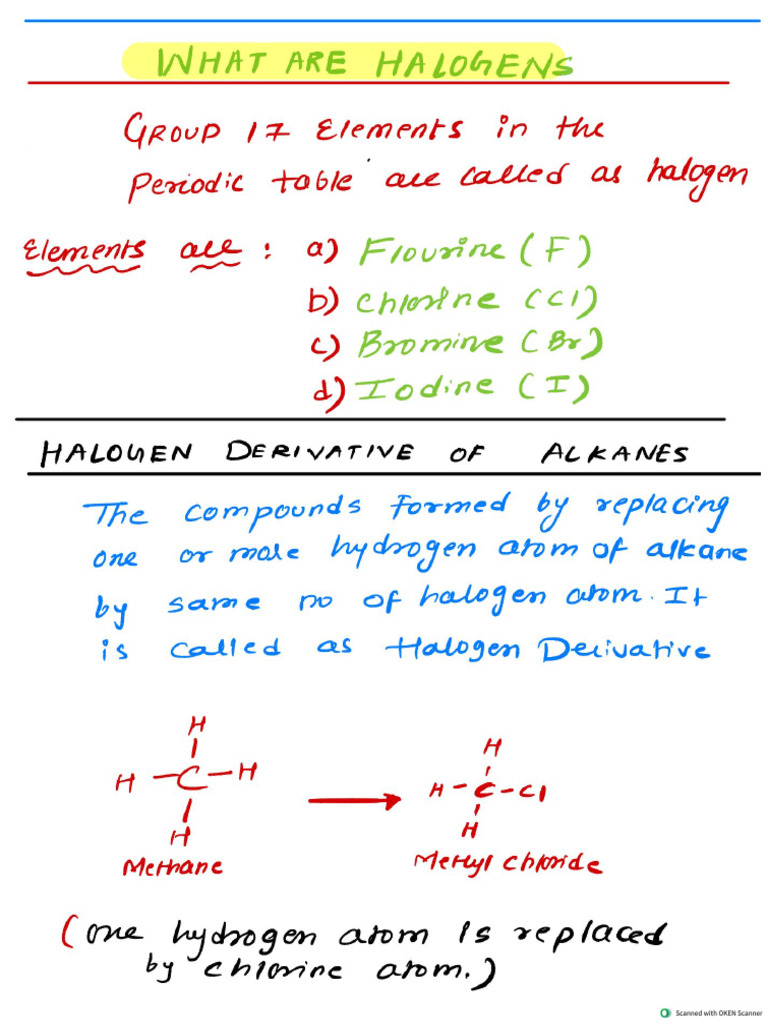 WHAT ARE HALOGENS
GROUP 17 Elements in the
Periodic table are called as halogen
Elements are : a) Flourine (F)
b) Chlorine (Cl)
c) Bromine (Br)
d) Iodine (I)
HALOGEN DERIVATIVE OF ALKANES
The compounds formed by replacing
one or more hydrogen atom of alkane
by same no of halogen atom. It
is called as Halogen Derivative
H
H
H - C - H
H - C - Cl
H
H
Methane
Methyl chloride
(one hydrogen atom is replaced
by chlorine atom.)
Scanned with OKEN Scanner